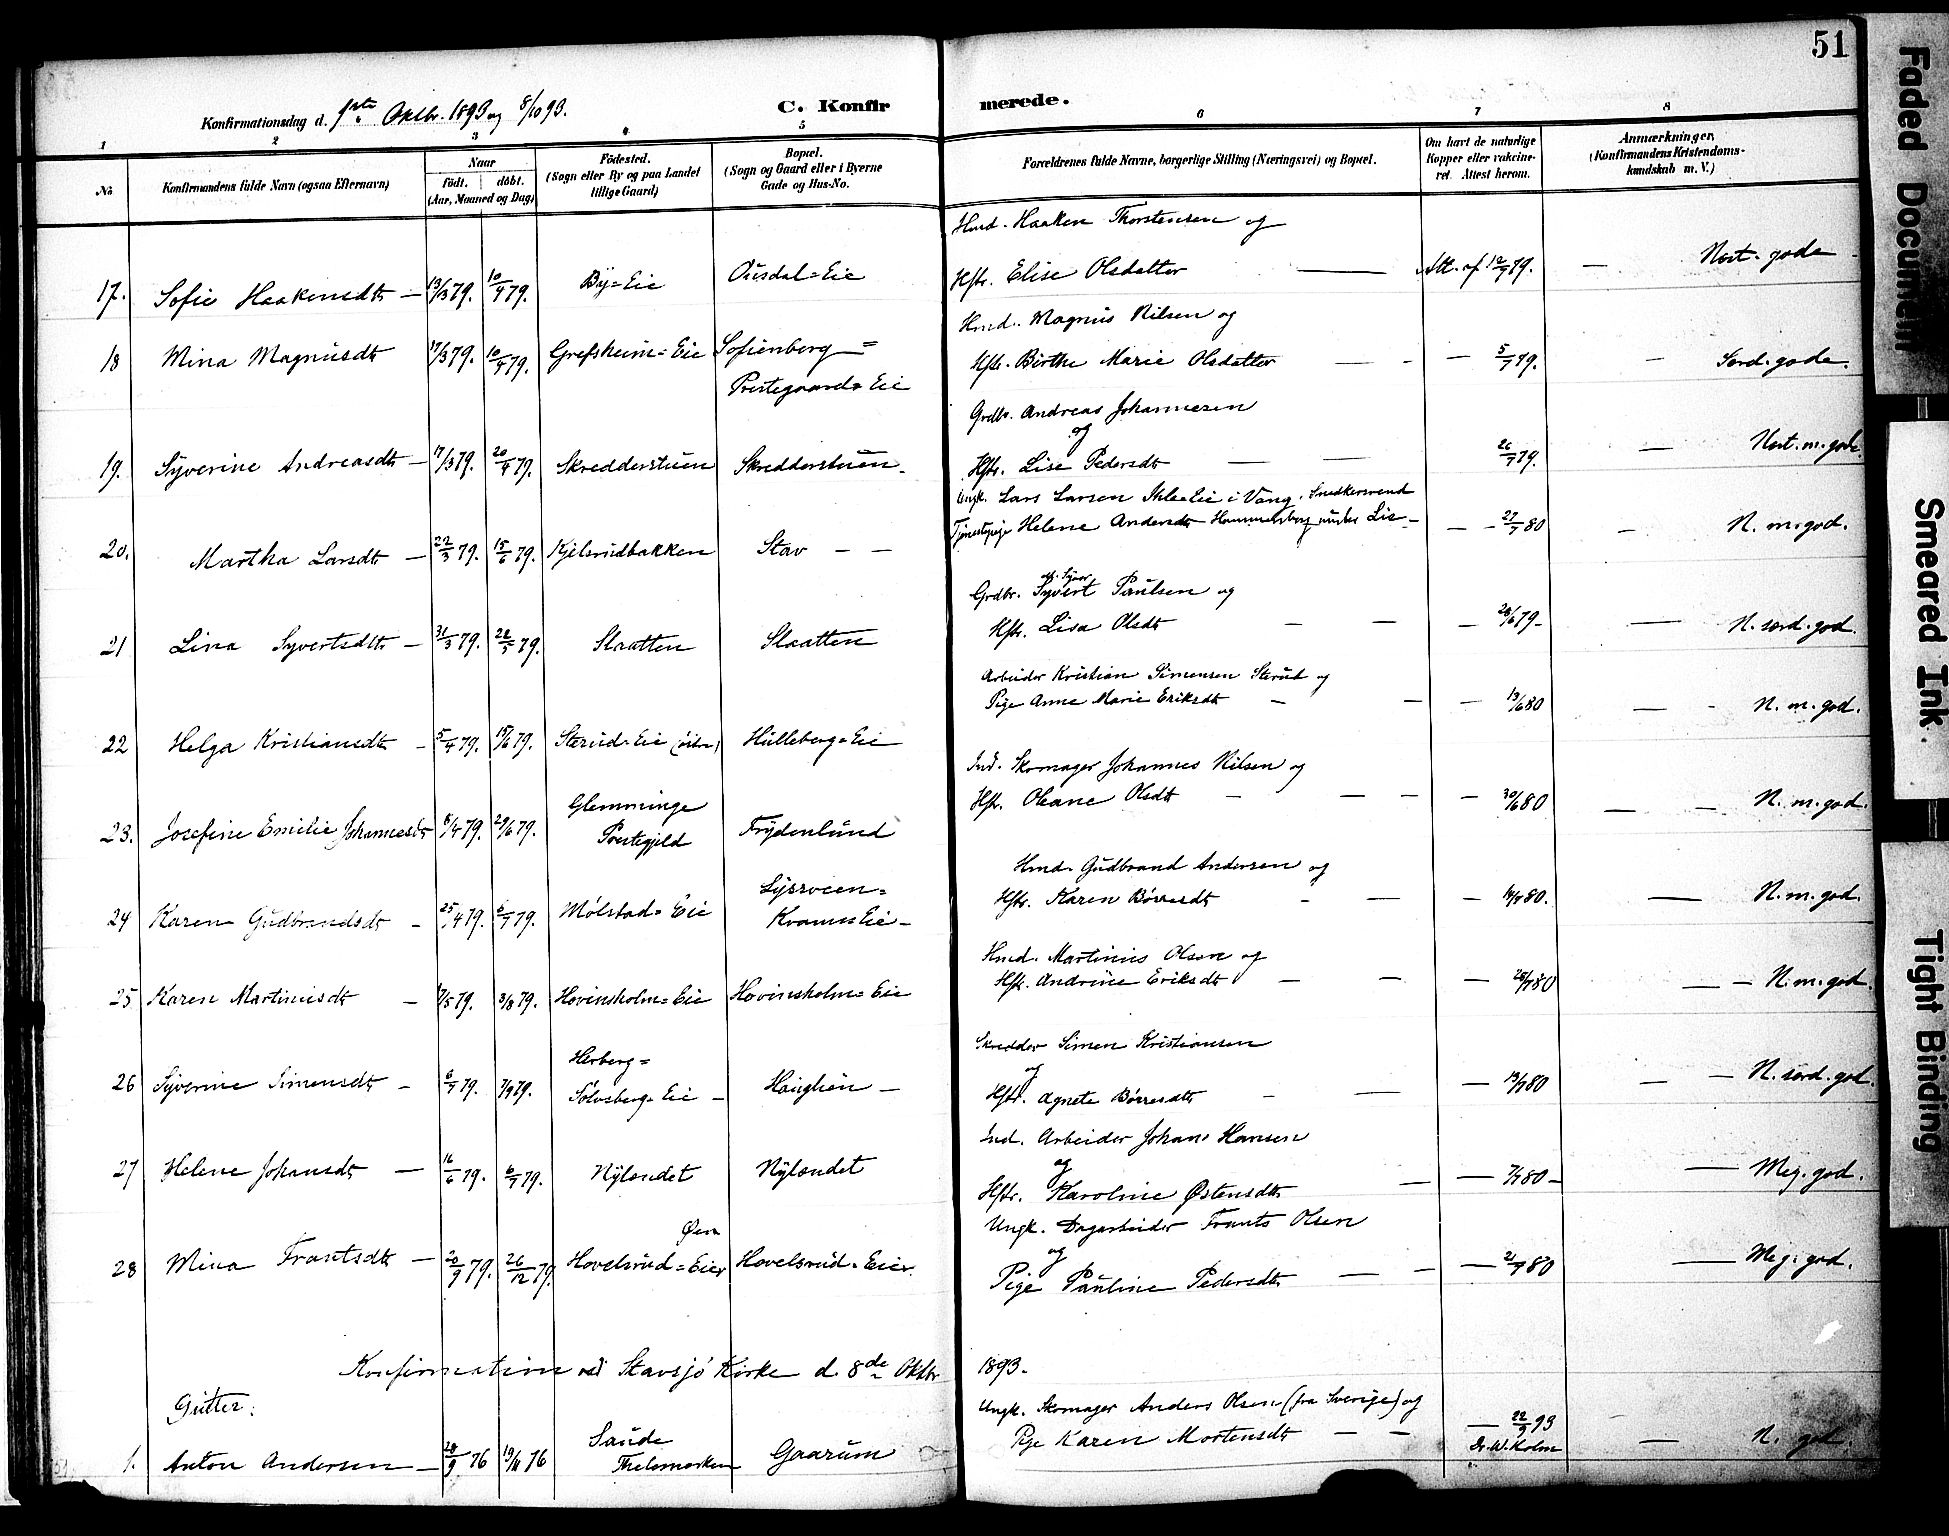 51
Konfirmationsdag d. 1ste Oktbr. 1893 og 8/10 93.
C. Konfirmerede.
1 2 3 4 5 6 7 8
No
Konfirmandens fulde Navn (ogsaa Efternavn)
Naar
født. døbt.
(Aar, Maaned og Dag)
Fødested.
(Sogn eller By og paa Landet
tillige Gaard)
Bopæl.
(Sogn og Gaard eller i Byerne
Gade og Hus-No.
Forældrenes fulde Navne, borgerlige Stilling (Næringsvei) og Bopæl.
Om havt de naturlige
Kopper eller vakcine-
ret. Attest herom.
Anmærkninger.
(Konfirmandens Kristendoms-
kundskab m. V.)
Hmd. Haaken Thorstensen og
17. Sofie Haakensdtr — 13/3 79. 10/4 79. By=Eie Ousdal=Eie Hstr. Elise Olsdatter — Att. af 10/7 79. — Næst. gode
Hmd. Magnus Nilsen og
18 Mina Magnusdtr 17/3 79. 10/4 79. Grefsheim=Eie Sofienberg = Hstr. Birthe Marie Olsdatter — — 5/7 79. — Særd. gode.
Prestegaards Eie
Grdbr. Andreas Johannesen
og
19. Syverine Andreasdtr — 17/3 79. 20/4 79. Skredderstuen Skredderstuen. Hstr. Lise Pedersdtr — — 26/7 79. — Næst. m. gode.
Ungk. Lars Larsen Eie i Vang. Snedkersvend
Tjenestepige Helene Andersdtr Hammersborg under Lie —
20. Martha Larsdtr — 22/3 79. 15/6 79. Kjelsrudbakken Stav — — — 27/7 80 — N. m. god.
Grdbr. Syvert Paulsen og
21 Lina Syvertsdtr — 31/3 79. 22/5 79. Slaatten Slaatten Hstr. Lisa Olsdtr — — — 28/6 79 — — N. særd. god.
Arbeider Kristian Simensen Sterud og
Pige Anne Marie Eriksdtr — — — 13/6 80 — — N. m. god.
22 Helga Kristiansdtr — 5/4 79. 15/6 79. Sterud=Eie Hulleberg=Eie
Ind. Skomager Johannes Nilsen og
Hstr. Oleane Olsdtr — — — — 30/6 80 — — N. m. god.
23. Josefine Emilie Johannesdtr 8/4 79. 29/6 79. Glemminge
Prestegjeld Frydenlund
Hmd. Gudbrand Andersen og
Hstr. Karen Børresdtr — — — 14/7 80. — N. m. god.
24 Karen Gudbrandsdtr — 25/4 79. 6/7 79. Mølstad=Eie
Kvams Eie —
Hmd. Martinius Olsen og
Hstr. Andrine Eriksdtr — — — 28/7 80 — — N. m. god.
25 Karen Martiniusdtr — 7/5 79. 3/8 79. Hovinsholm=Eie Hovinsholm=Eie
Skredder Simen Kristiansen
og
26 Syverine Simensdtr — 6/7 79. 7/9 79. Herberg=
Sølvsberg=Eie — Haughen — Hstr. Agnete Børresdtr — — — 13/7 80 — — N. særd. god.
Ind. Arbeider Johan Hansen
og
27 Helene Johansdtr — 16/6 79. 6/7 79. Nylændet Nylændet Hstr. Karoline Østensdtr — — 7/7 80 — — Meg. god.
Ungk. Dagarbeider Frants Olsen
og
28 Mina Frantsdtr — 20/9 79. 26/12 79. Hovelsrud=Eie Hovelsrud=Eie Pige Pauline Pedersdtr — — — 2/7 80 — Meg. god.
Konfirmation ved Stavsjø Kirke d. 8de Oktbr. 1893.
Gutter:
Ungk. Skomager Anders Olsen (fra Sverige) og
1. Anton Andersen — 28/9 76 19/11 76 Saude
Thelemarken Gaarum Pige Karen Mortensdtr — — — 22/9 93
Dr. W. Holm — N. god.
Faded Document
Smeared Ink.
Tight Binding